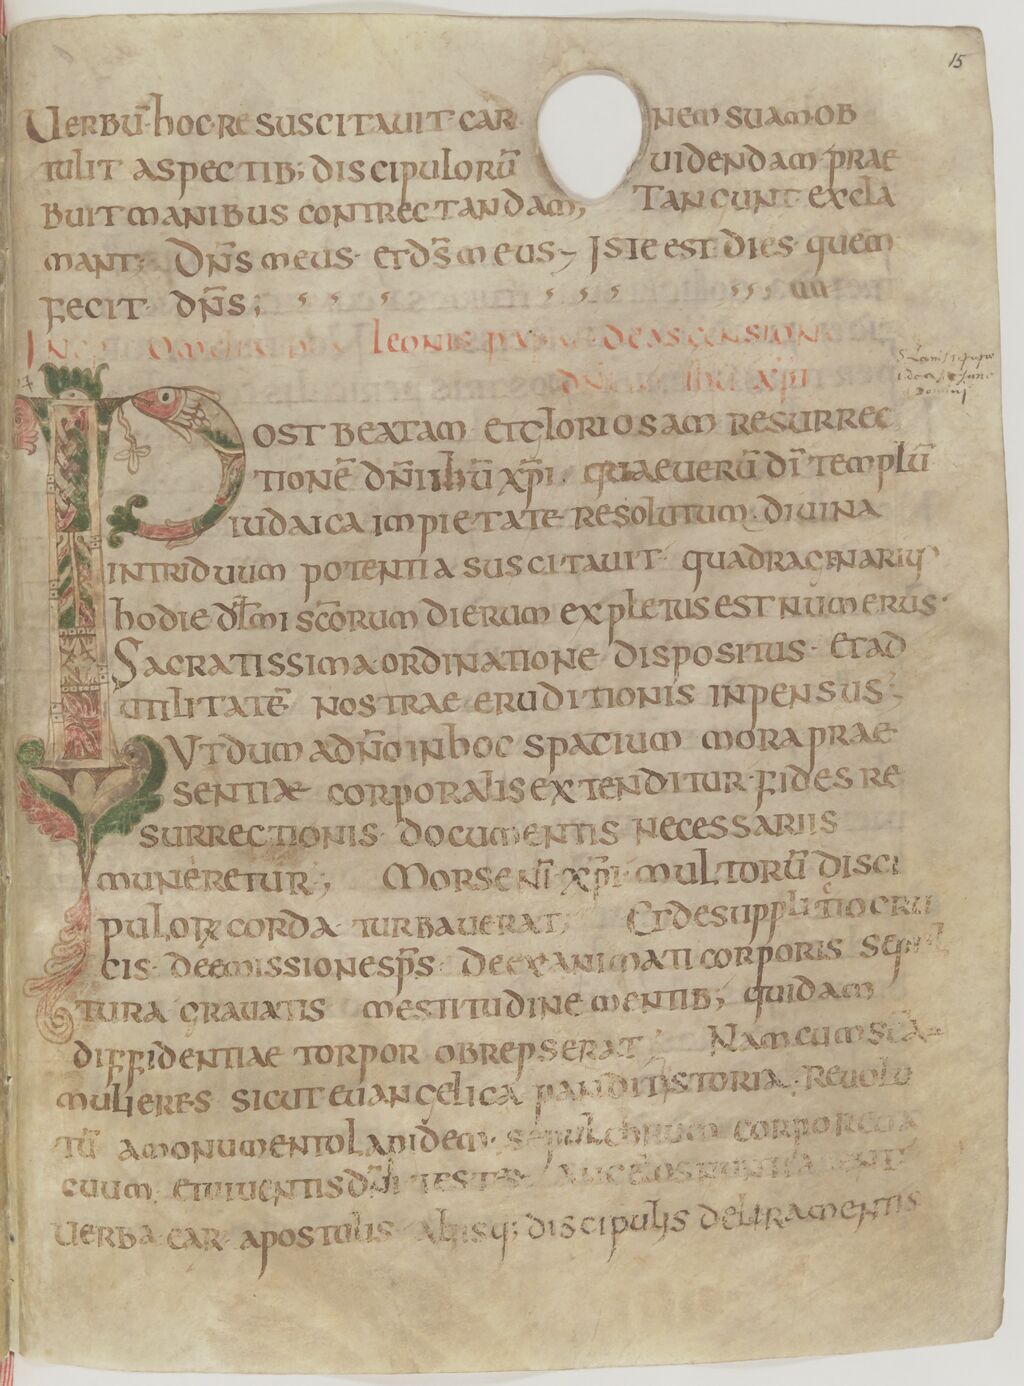 15
Uerbū hoc resuscitauit car nem suam ob
tulit aspectib; discipulorū uidendam prae
buit manibus contrectandam; Tancunt excla
mant; Dn̄s meus et ds̄ meus Iste est dies quem
fecit dn̄s;
Leonis papae de ascension
dn̄i ihu xp̄i
S. Leonis
Post beatam et gloriosam resurrec
tionē dn̄i ihū xp̄i, qua euerū dī templū
iudaica impietate resolutum diuina
in triduum potentia suscitauit quadragenarius
hodie dl̄mi sc̄orum dierum expletus est numerus
Sacratissima ordinatione dispositus et ad
utilitatē nostrae eruditionis inpensus;
Ut dum a dn̄o in hoc spacium mora prae
sentiæ corporalis extenditur fides re
surrectionis documentis necessariis
muneretur; Mors eni xp̄i multorū disci
pulorꝝ corda turbauerat; Et de supplitio cru
cis de emissione sp̄s de exanimati corporis sepul
tura grauatis mestitudine mentib; quidam
diffidentiae torpor obrepserat; Nam cum sc̄ā
mulieres sicut euangelica pandit istoria reuolu
tū a monumento lapidem sepulchrum corpore
cuum et uiuentis dn̄i testes angelos
uerba car apostulis aliisq; discipulis deliramentis